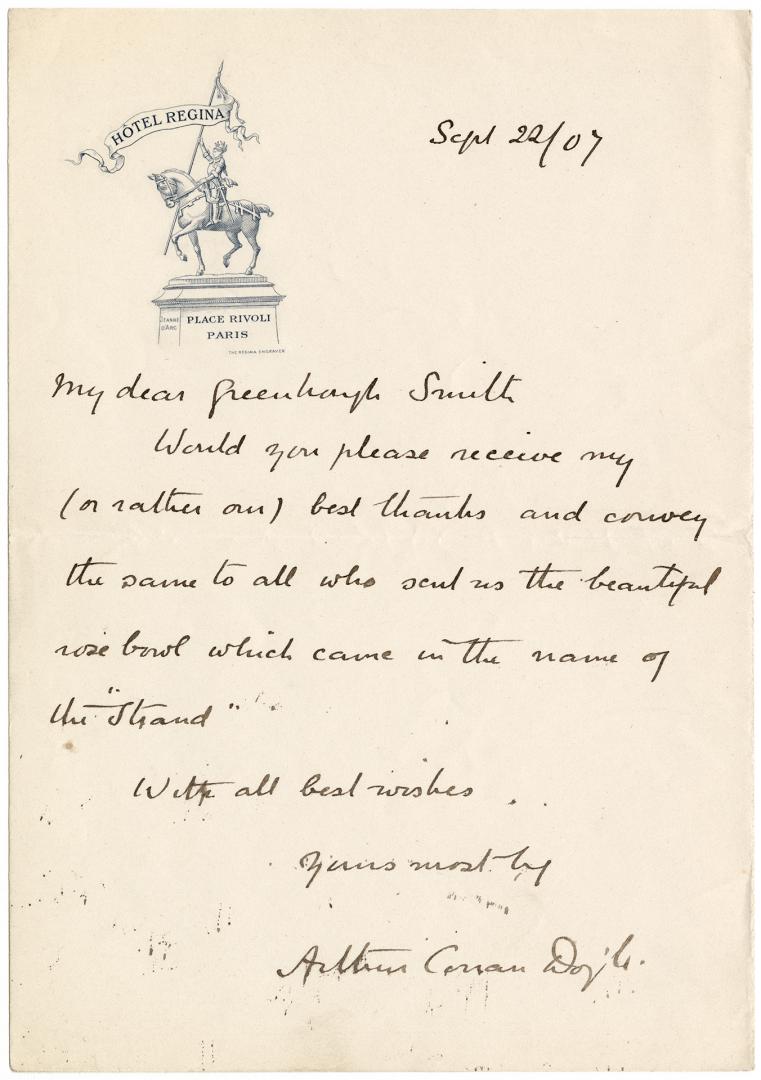 HÔTEL REGINA
Sept 22/07
JEANNE
D'ARC
PLACE RIVOLI
PARIS
THE REGINA ENGRAVER
My dear Greenhough Smith
Would you please receive my
(or rather our) best thanks and convey
the same to all who sent us the beautiful
rose bowl which came in the name of
the "Strand"
With all best wishes
Yours most
Arthur Conan Doyle.